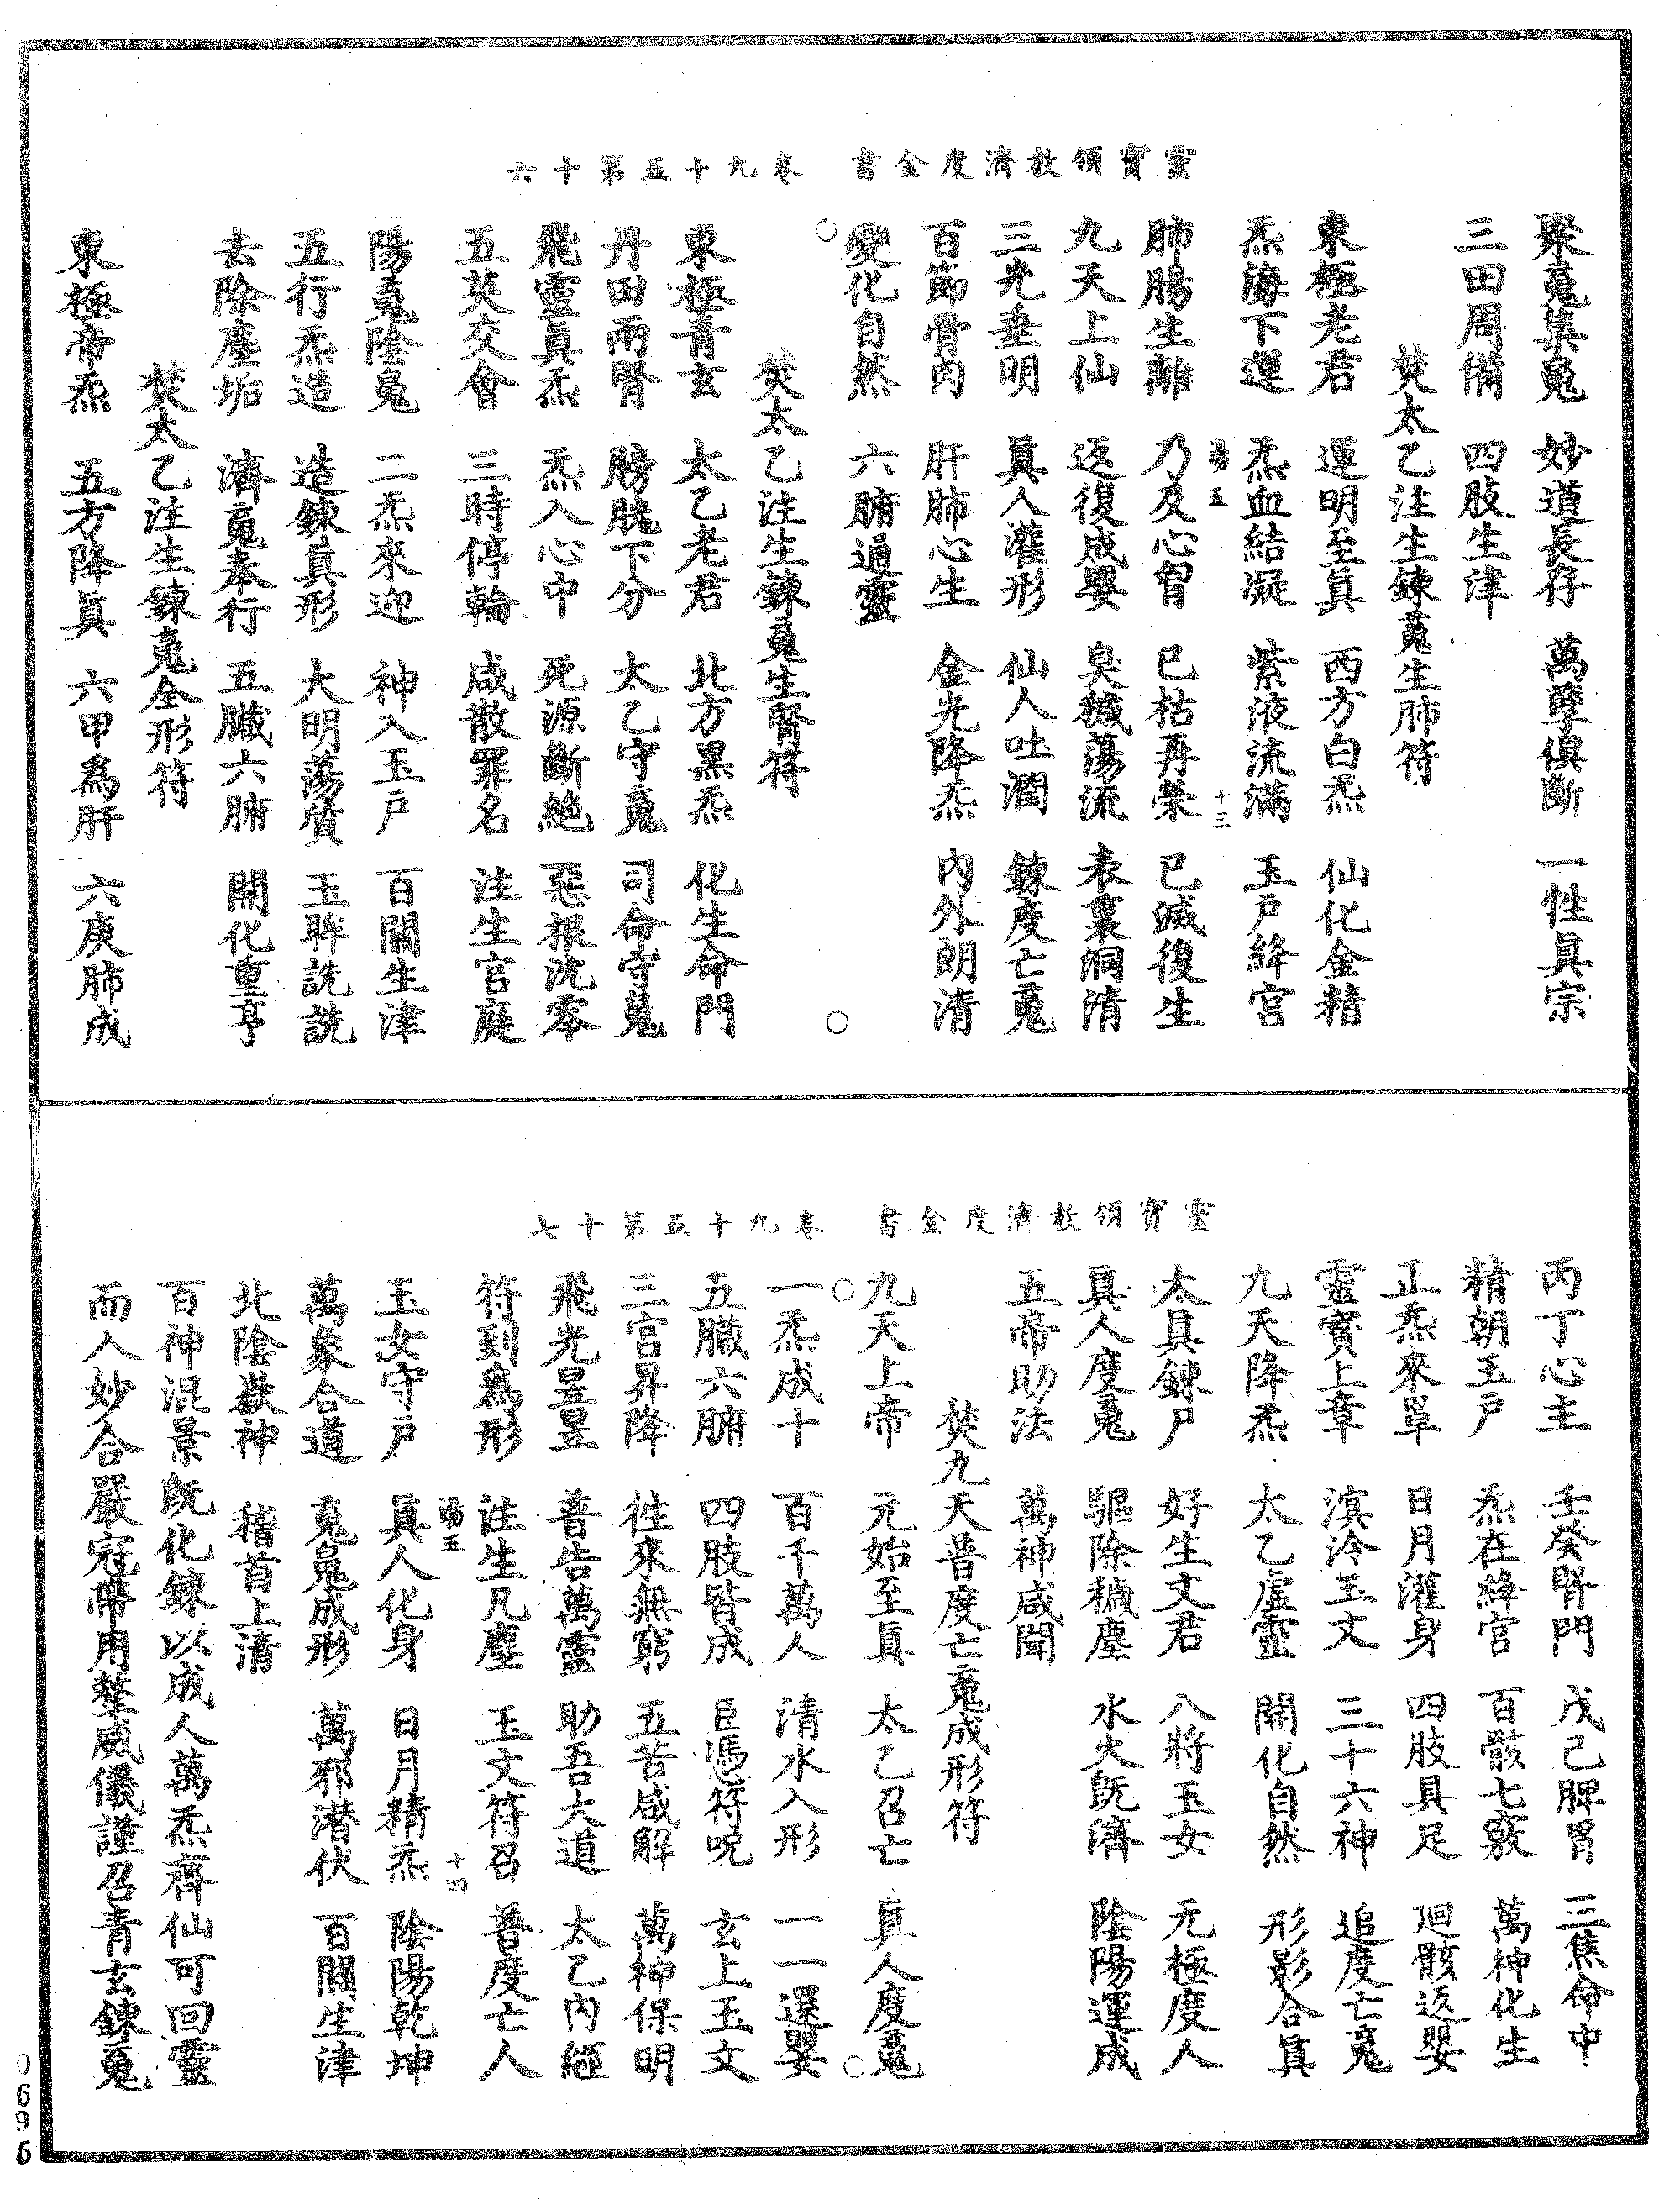 靈寶領敎濟度金書　卷九十五第十六
聚䰟集魄　妙道長存　萬孽俱斷　一性眞宗
三田周備　四肢生津
焚太乙注生鍊䰟生肺符
東極老君　運明至眞　西方白炁　仙化金精
炁海下運　炁血結凝　紫液流滿　玉戶絳宮
五　十三
肺腸生離　乃及心胃　已枯再榮　已滅復生
九天上仙　返復成嬰　臭穢蕩流　表裏洞清
三光垂明　眞人灌形　仙人吐潤　鍊度亡䰟
百節骨肉　肝肺心生　金光降炁　內外朗清
變化自然　六腑通靈
焚太乙注生鍊䰟生腎符
東極青玄　太乙老君　北方黑炁　化生命門
丹田兩腎　膀胱下分　太乙守䰟　司命守䰟
飛靈眞炁　炁入心中　死源斷絕　惡根沈零
五英交會　三時停輪　咸散罪名　注生官庭
陽䰟陰魄　二炁來迎　神入玉戶　百關生津
五行炁造　造鍊眞形　大明蕩質　玉眸詵詵
去除塵垢　濟䰟奉行　五臟六腑　開化重亨
焚太乙注生鍊䰟全形符
東極帝炁　五方降眞　六甲爲肝　六庚肺成
靈寶領敎濟度金書　卷九十五第十七
丙丁心主　壬癸腎門　戊己脾胃　三焦命中
精朝玉戶　炁在絳宮　百骸七竅　萬神化生
正炁來罩　日月灌身　四肢具足　廻骸返嬰
靈寶上章　滇泠玉文　三十六神　追度亡䰟
九天降炁　太乙虛靈　開化自然　形影合眞
太具鍊尸　好生文君　八將玉女　无極度人
眞人度䰟　驅除穢塵　水火旣濟　陰陽運成
五帝助法　萬神咸聞
焚九天普度亡䰟成形符
九天上帝　元始至眞　太乙召亡　眞人度䰟
一炁成十　百千萬人　清水入形　一一還嬰
五臟六腑　四肢皆成　臣憑符呪　玄上玉文
三宮昇降　往來無窮　五苦咸解　萬神保明
飛光昱昱　普告萬靈　助吾大道　太乙內經
符到爲形　注生凡塵　玉文符召　普度亡人
五　十四
玉女守戶　眞人化身　日月精炁　陰陽乾坤
萬象合道　䰟魄成形　萬邪潛伏　百關生津
北陰嶽神　稽首上清
百神混景旣化鍊以成人萬炁齊仙可回靈
而入妙合嚴冠帶用整威儀謹召青玄鍊䰟
0696